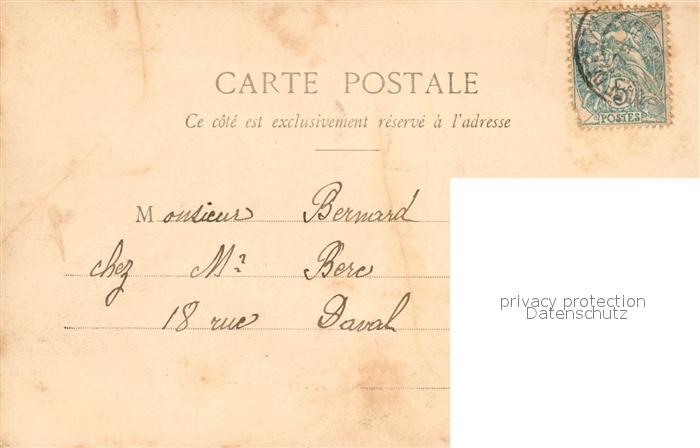 CARTE POSTALE
Ce côté est exclusivement réservé à l'adresse
5
POSTES
Monsieur Bernard
chez Mr Berc
18 rue Daval
privacy protection
Datenschutz